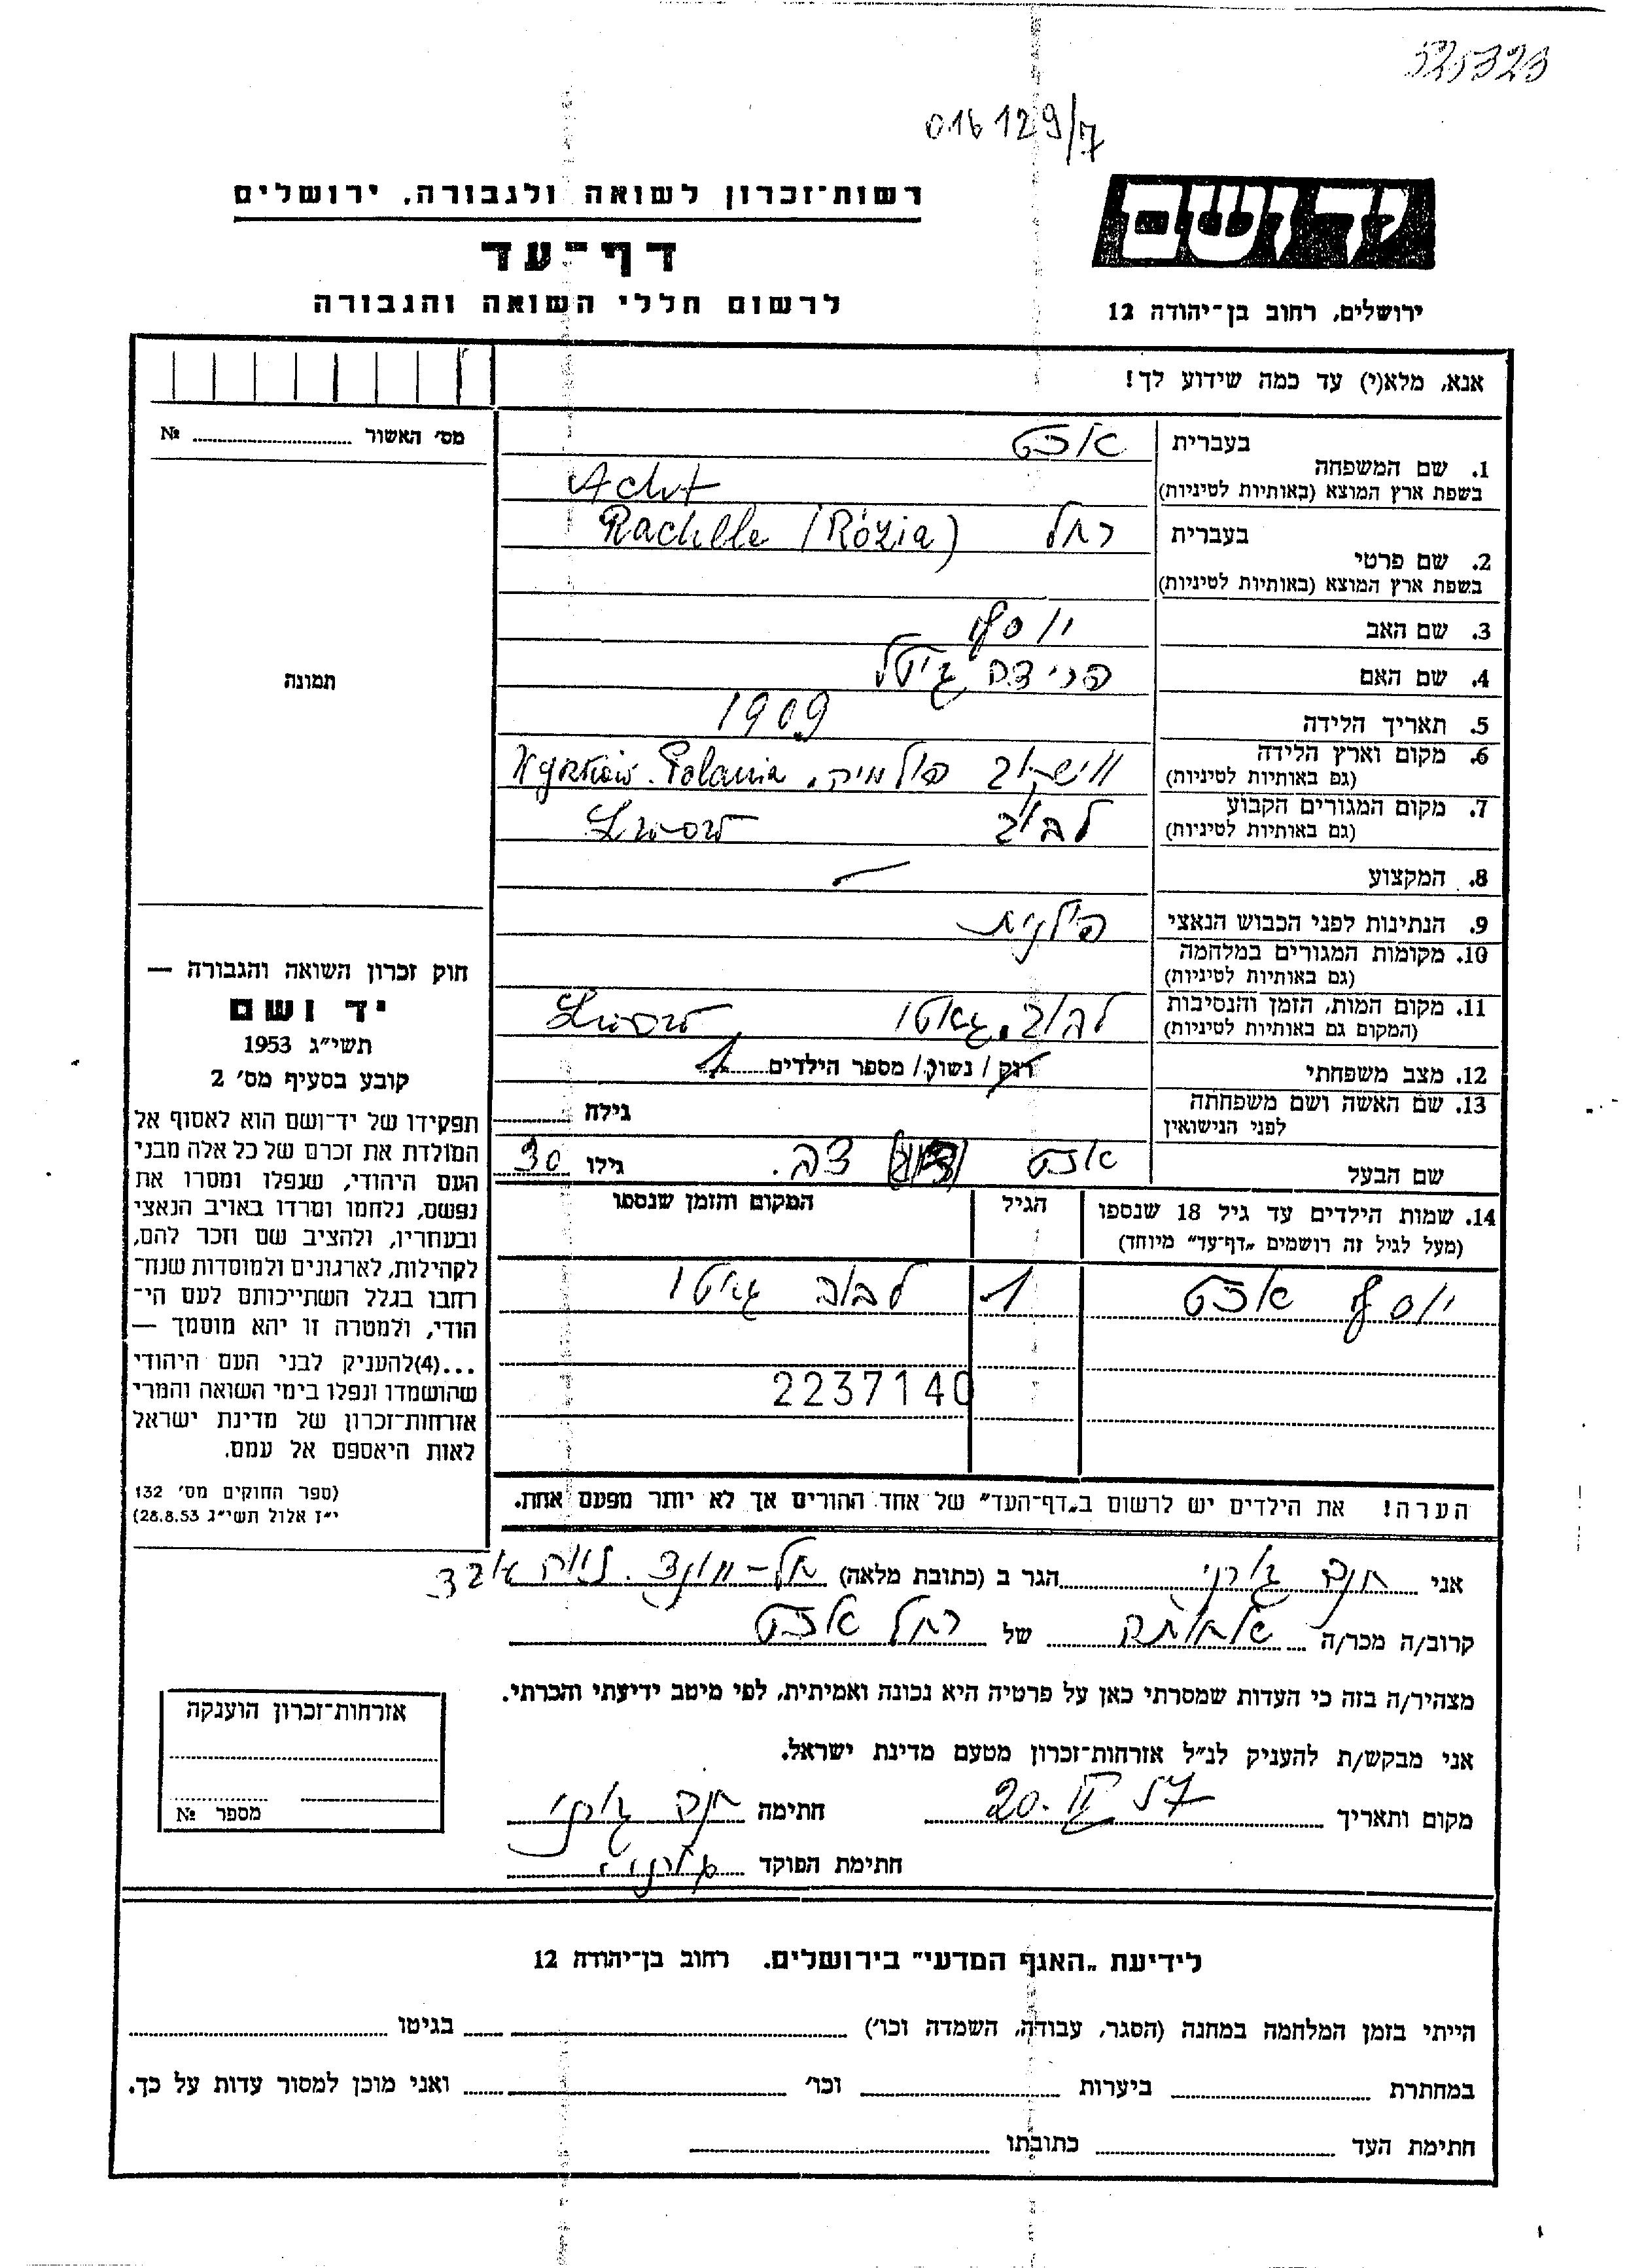 525323
016129/7
יד ושם
ירושלים, רחוב בן־יהודה 12
רשות־זכרון לשואה ולגבורה, ירושלים
דף־עד
לרשום חללי השואה והגבורה
אנא, מלא(י) עד כמה שידוע לך!
מס׳ האשור № ........
תמונה
1. שם המשפחה
בעברית אכט
בשפת ארץ המוצא (באותיות לטיניות) Acht
2. שם פרטי
בעברית רחל Rachelle (Rózia)
בשפת ארץ המוצא (באותיות לטיניות)
3. שם האב יוסף
4. שם האם גיטל
5. תאריך הלידה 1909
6. מקום וארץ הלידה
(גם באותיות לטיניות) Polania
7. מקום המגורים הקבוע לבוב
(גם באותיות לטיניות) Lwow
8. המקצוע —
9. הנתינות לפני הכבוש הנאצי פולנית
10. מקומות המגורים במלחמה
(גם באותיות לטיניות)
11. מקום המות, הזמן והנסיבות לבוב, גאטו
(המקום גם באותיות לטיניות) Lwow
12. מצב משפחתי רוק / נשוי / מספר הילדים 1
13. שם האשה ושם משפחתה
לפני הנישואין גילה ........
שם הבעל אכט צבי גילו 30
14. שמות הילדים עד גיל 18 שנספו הגיל המקום והזמן שנספו
(מעל לגיל זה רושמים „דף־עד״ מיוחד)
יוסף אכט 1 לבוב גאטו
2237140
הערה! את הילדים יש לרשום ב„דף־העד״ של אחד ההורים אך לא יותר מפעם אחת.
חוק זכרון השואה והגבורה —
יד ושם
תשי״ג 1953
קובע בסעיף מס׳ 2
תפקידו של יד־ושם הוא לאסוף אל
המולדת את זכרם של כל אלה מבני
העם היהודי, שנפלו ומסרו את
נפשם, נלחמו ומרדו באויב הנאצי
ובעוזריו, ולהציב שם וזכר להם,
לקהילות, לארגונים ולמוסדות שנח־
רבו בגלל השתייכותם לעם הי־
הודי, ולמטרה זו יהא מוסמך —
...(4) להעניק לבני העם היהודי
שהושמדו ונפלו בימי השואה והמרי
אזרחות־זכרון של מדינת ישראל
לאות היאספם אל עמם.
(ספר החוקים מס׳ 132
י״ז אלול תשי״ג 28.8.53)
אני חנה הגר ב (כתובת מלאה)
קרוב/ה מכר/ה של רחל אכט
מצהיר/ה בזה כי העדות שמסרתי כאן על פרטיה היא נכונה ואמיתית, לפי מיטב ידיעתי והכרתי.
אני מבקש/ת להעניק לנ״ל אזרחות־זכרון מטעם מדינת ישראל.
מקום ותאריך 20. II 57 חתימה חנה
חתימת הפוקד
אזרחות־זכרון הוענקה
מספר №
לידיעת „האגף המדעי״ בירושלים. רחוב בן־יהודה 12
הייתי בזמן המלחמה במחנה (הסגר, עבודה, השמדה וכו׳) ........ בגיטו ........
במחתרת ........ ביערות ........ וכו׳ ........ ואני מוכן למסור עדות על כך.
חתימת העד ........ כתובתו ........